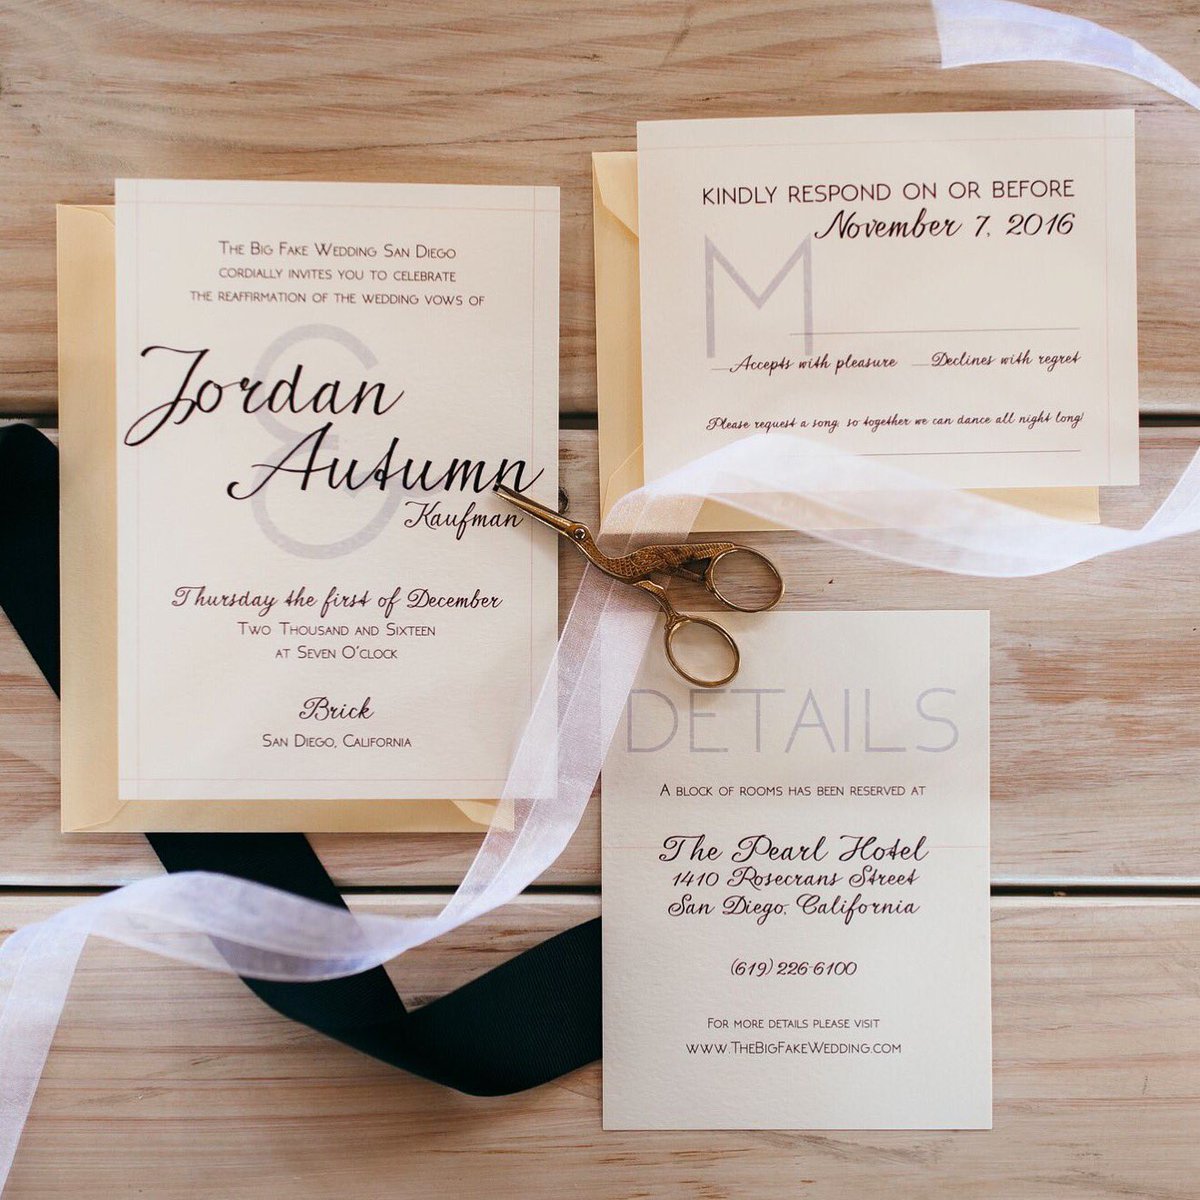 The Big Fake Wedding San Diego
cordially invites you to celebrate
the reaffirmation of the wedding vows of
Jordan
&
Autumn
Kaufman
Thursday the first of December
Two Thousand and Sixteen
at Seven O'clock
Brick
San Diego, California
KINDLY RESPOND ON OR BEFORE
November 7, 2016
M
Accepts with pleasure Declines with regret
Please request a song, so together we can dance all night long!
DETAILS
A block of rooms has been reserved at
The Pearl Hotel
1410 Rosecrans Street
San Diego, California
(619) 226-6100
For more details please visit
www.TheBigFakeWedding.com